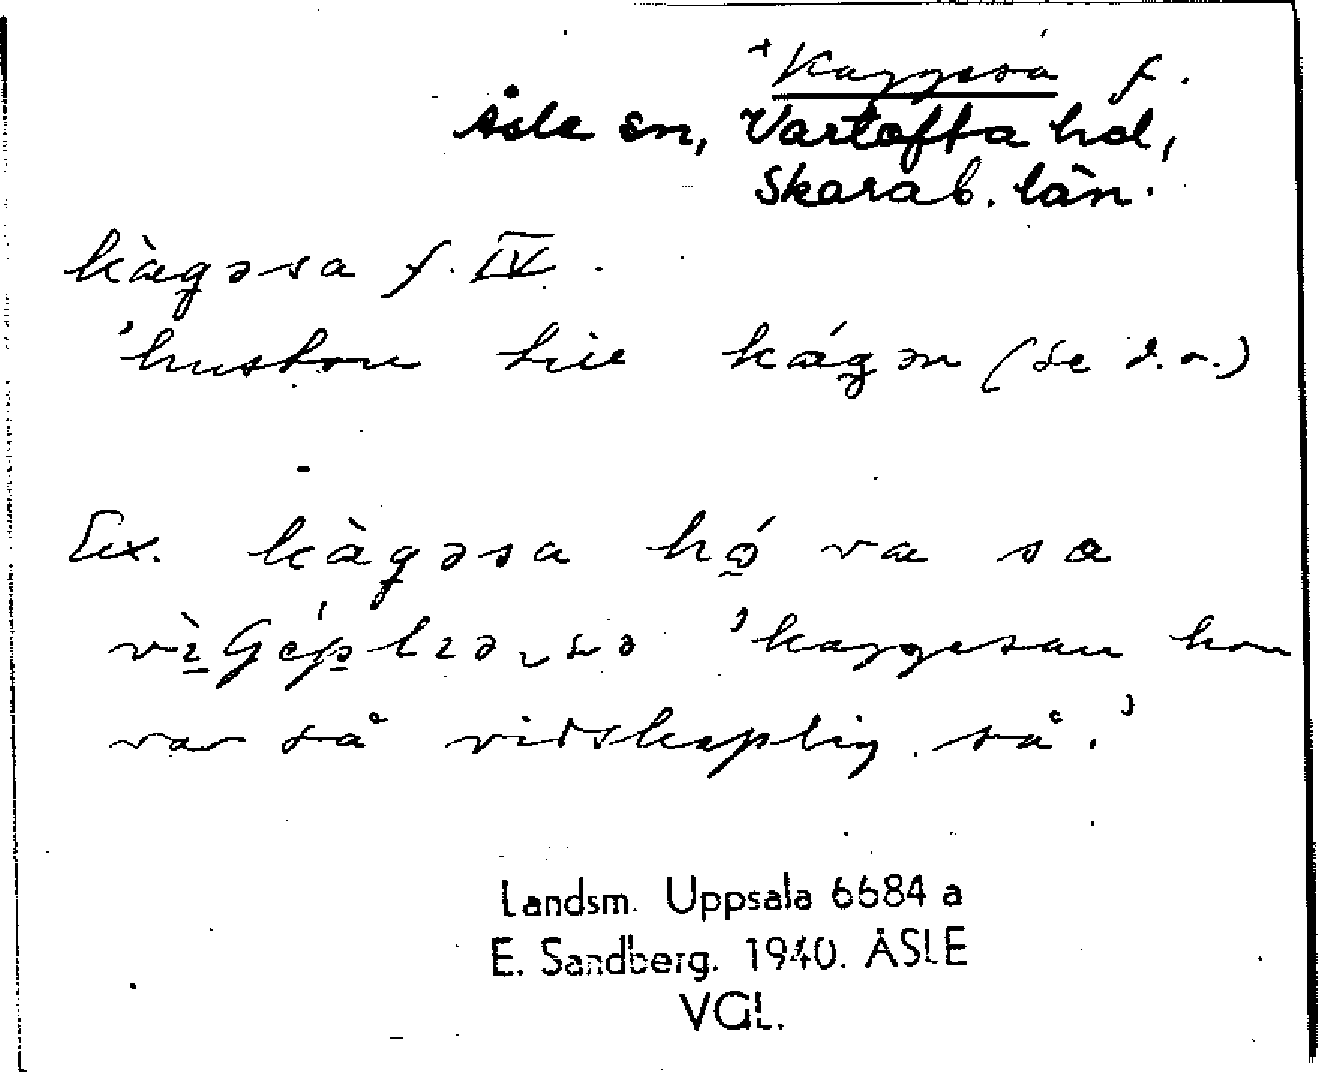 +Kaggesa f.
Åsle sn, Vartofta hd,
Skarab. län.
kàgəsa f. IV.
'hustru till kágən (se d.o.)
Ex. kàgəsa hó̱ va sa
'kaggesan hon
var så vidskeplig så.'
Landsm. Uppsala 6684 a
E. Sandberg. 1940. ÅSLE
VGL.